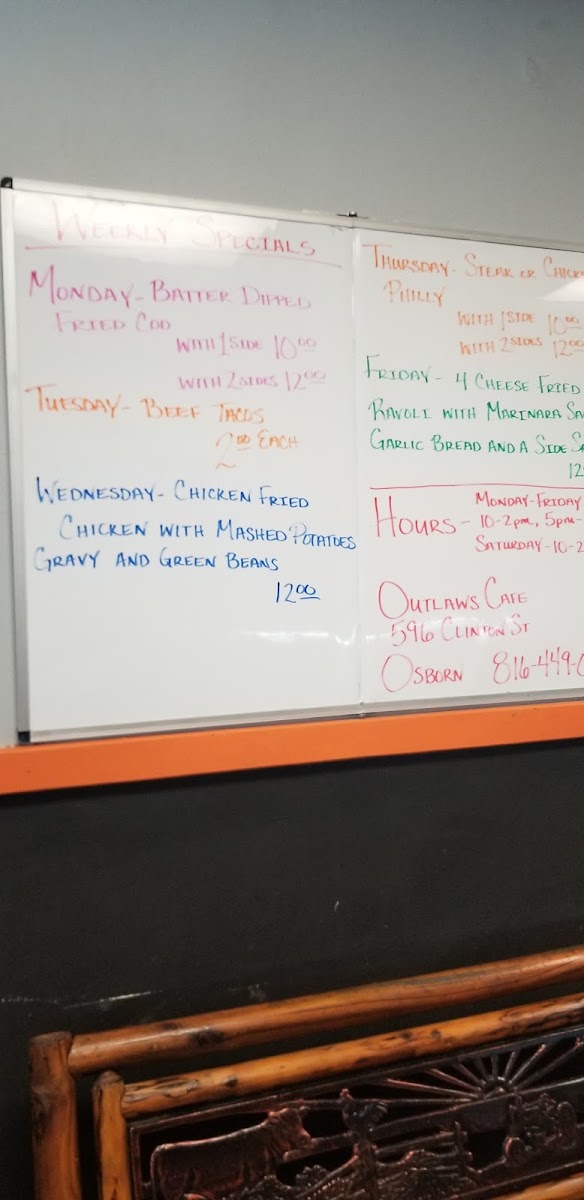 Weekly Specials
Monday - Batter Dipped
Fried Cod
with 1 side 10.00
with 2 sides 12.00
Tuesday - Beef Tacos
2.00 Each
Wednesday - Chicken Fried
Chicken with Mashed Potatoes
Gravy and Green Beans
12.00
Thursday - Steak or
Philly
with 1 side 10.00
with 2 sides 12.00
Friday - 4 Cheese Fried
Ravoli with Marinara
Garlic Bread and a Side
Hours - Monday-Friday
10-2pm, 5pm-
Saturday - 10-2
Outlaws Cafe
596 Clinton St
Osborn 816-449-